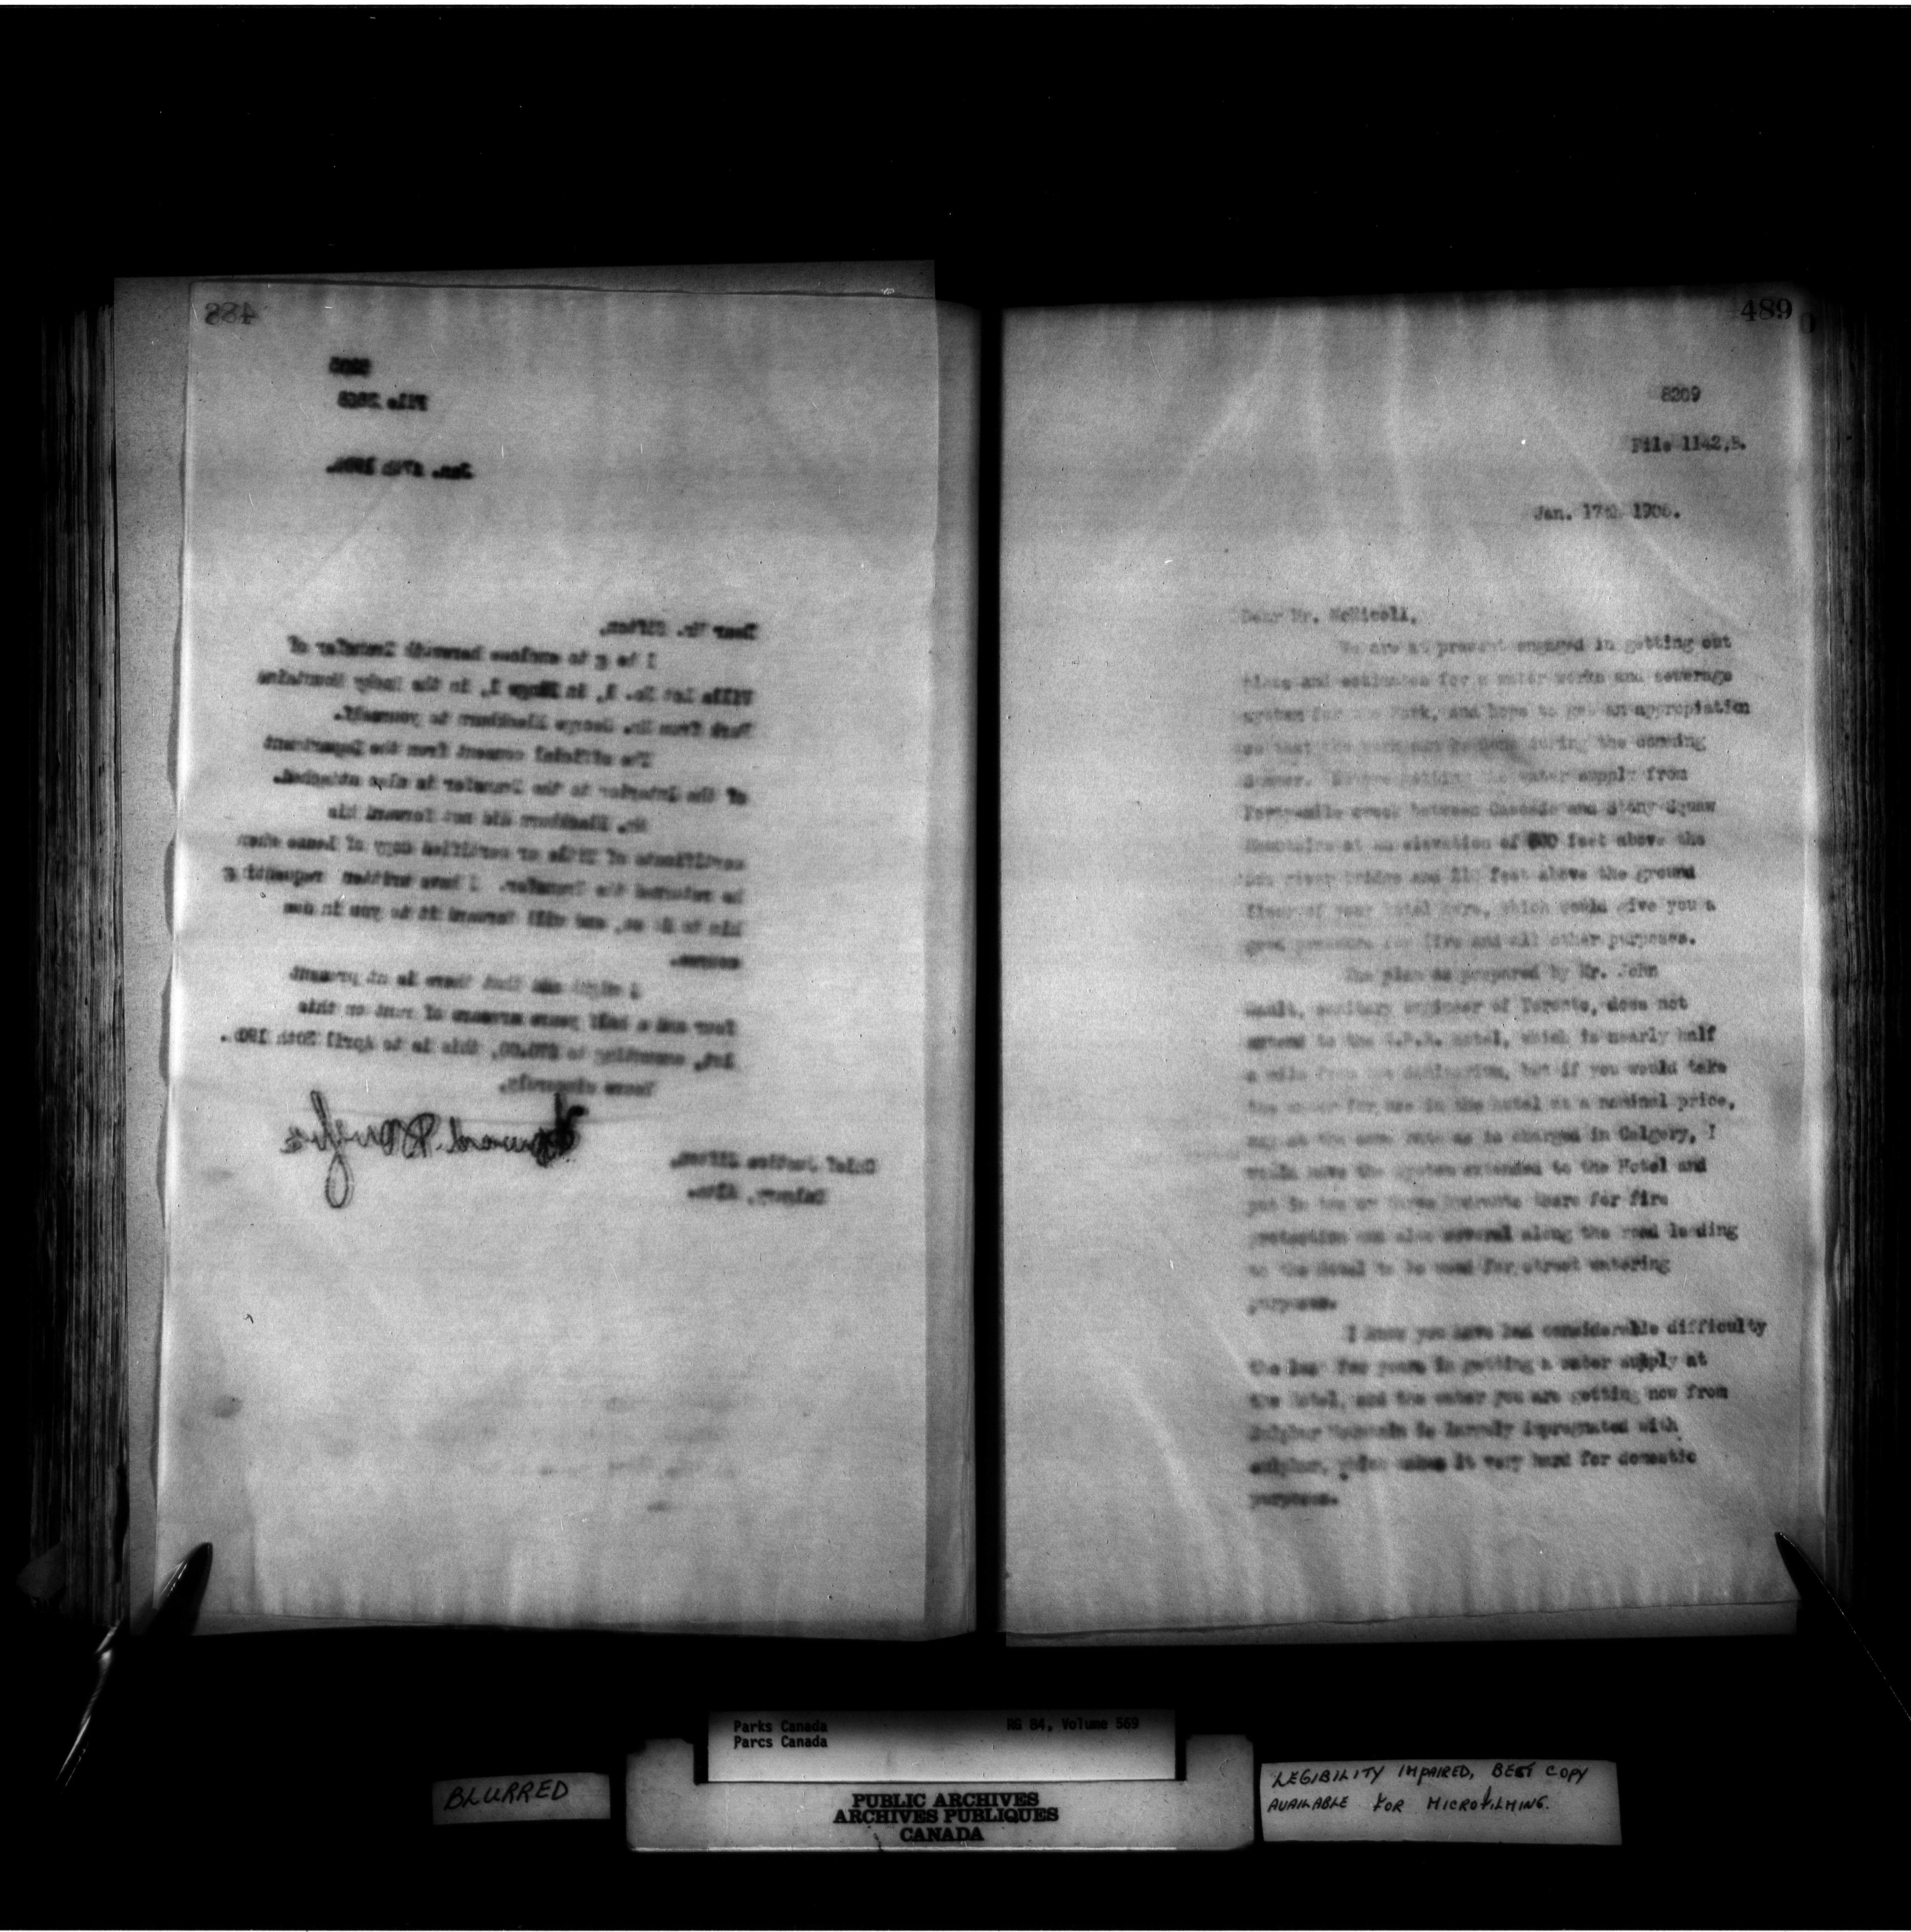 488
File
Jan. 17th
Dear Mr. Sifton,
I be g to enclose herewith Transfer of
Villa Lot No. in Range in the Rocky Mountains
Park from Mr. George Blackburn to yourself.
The official consent from the Department
of the Interior to the Transfer is also attached.
Mr. Blackburn did not forward his
certificate of Title or certified copy of Lease when
he returned the Transfer. I have written requestin g
him to do so, and will forward it to you in due
course.
I might add that there is at present
four and a half years arrears of rent on this
lot, amounting to this is to April 30th
Yours sincerely,
Howard Douglas
Chief Justice Sifton,
Calgary, Alta.
489
8209
File 1142,
Jan. 17th 1906.
Dear Mr. McNicoll,
We are at present engaged in getting out
plans and estimates for a water works and sewerage
system for the Park, and hope to get an appropiation
so that the work can be done during the comming
Summer. water supply from
Forty-mile creek between Cascade and Stony Squaw
Mountains at an elevation of feet above the
river bridge and feet above the ground
floor of your hotel here, which would give you a
good pressure for fire and all other purposes.
The plan as prepared by Mr. John
Galt, sanitary engineer of Toronto, does not
extend to the C.P.R. hotel, which is nearly half
a mile from the Sanitarium, but if you would take
the water for use in the hotel at a nominal price,
say at the same rate as is charged in Calgary, I
would have the system extended to the Hotel and
put in two or three hydrants there for fire
protection and also several along the road leading
to the Hotel to be used for street watering
purposes.
I know you have had considerable difficulty
the last few years in getting a water supply at
the hotel, and the water you are getting now from
Sulphur Mountain is largely impregnated with
sulphur, which makes it very hard for domestic
purposes.
Parks Canada
Parcs Canada
RG 84, Volume 569
BLURRED
PUBLIC ARCHIVES
ARCHIVES PUBLIQUES
CANADA
LEGIBILITY IMPAIRED, BEST COPY
AVAILABLE FOR MICROFILMING.